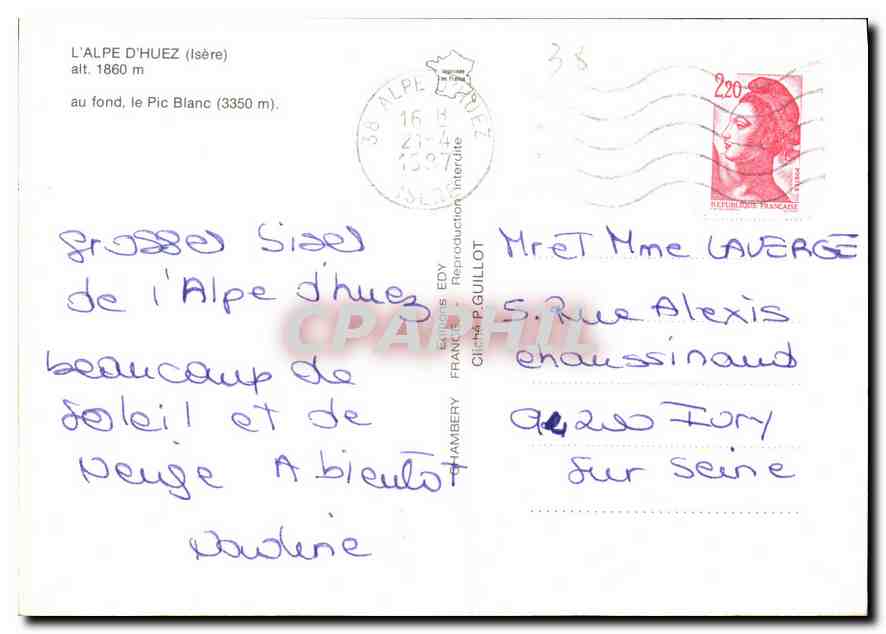 L'ALPE D'HUEZ (Isère)
alt. 1860 m
au fond, le Pic Blanc (3350 m).
38
38 ALPE D'HUEZ
16 H
21-4
1987
ISERE
2,20
REPUBLIQUE FRANCAISE
Grosses Bises
de l'Alpe d'huez
beaucoup de
Soleil et de
Neige A bientôt
CHAMBERY Editions EDY
FRANCE - Reproduction interdite
Cliché P. GUILLOT
CPAPHIL
Mr et Mme LAVERGE
5. Rue Alexis
chaussinand
94200 Ivry
Sur Seine